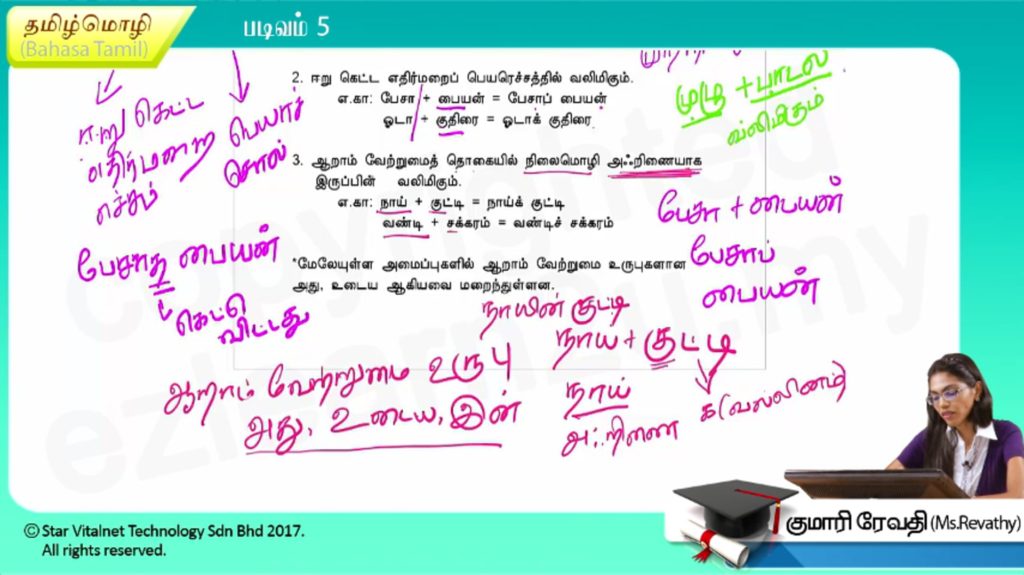 தமிழ்மொழி
(Bahasa Tamil)
படிவம் 5
2. ஈறு கெட்ட எதிர்மறைப் பெயரெச்சத்தில் வலிமிகும்.
எ.கா: பேசா + பையன் = பேசாப் பையன்
ஓடா + குதிரை = ஓடாக் குதிரை
3. ஆறாம் வேற்றுமைத் தொகையில் நிலைமொழி அஃறிணையாக
இருப்பின் வலிமிகும்.
எ.கா: நாய் + குட்டி = நாய்க் குட்டி
வண்டி + சக்கரம் = வண்டிச் சக்கரம்
*மேலேயுள்ள அமைப்புகளில் ஆறாம் வேற்றுமை உருபுகளான
அது, உடைய ஆகியவை மறைந்துள்ளன.
ஈறு கெட்ட
எதிர்மறை
எச்சம்
பெயர்ச்
சொல்
பேசாத பையன்
கெட்டு
விட்டது
முழு + பாடல்
வலிமிகும்
பேசா + பையன்
பேசாப்
பையன்
நாயின் குட்டி
நாய் + குட்டி
நாய்
அஃறிணை
க (வல்லினம்)
ஆறாம் வேற்றுமை உருபு
அது, உடைய, இன்
copyrighted
ezlearn2u.my
© Star Vitalnet Technology Sdn Bhd 2017.
All rights reserved.
குமாரி ரேவதி (Ms.Revathy)